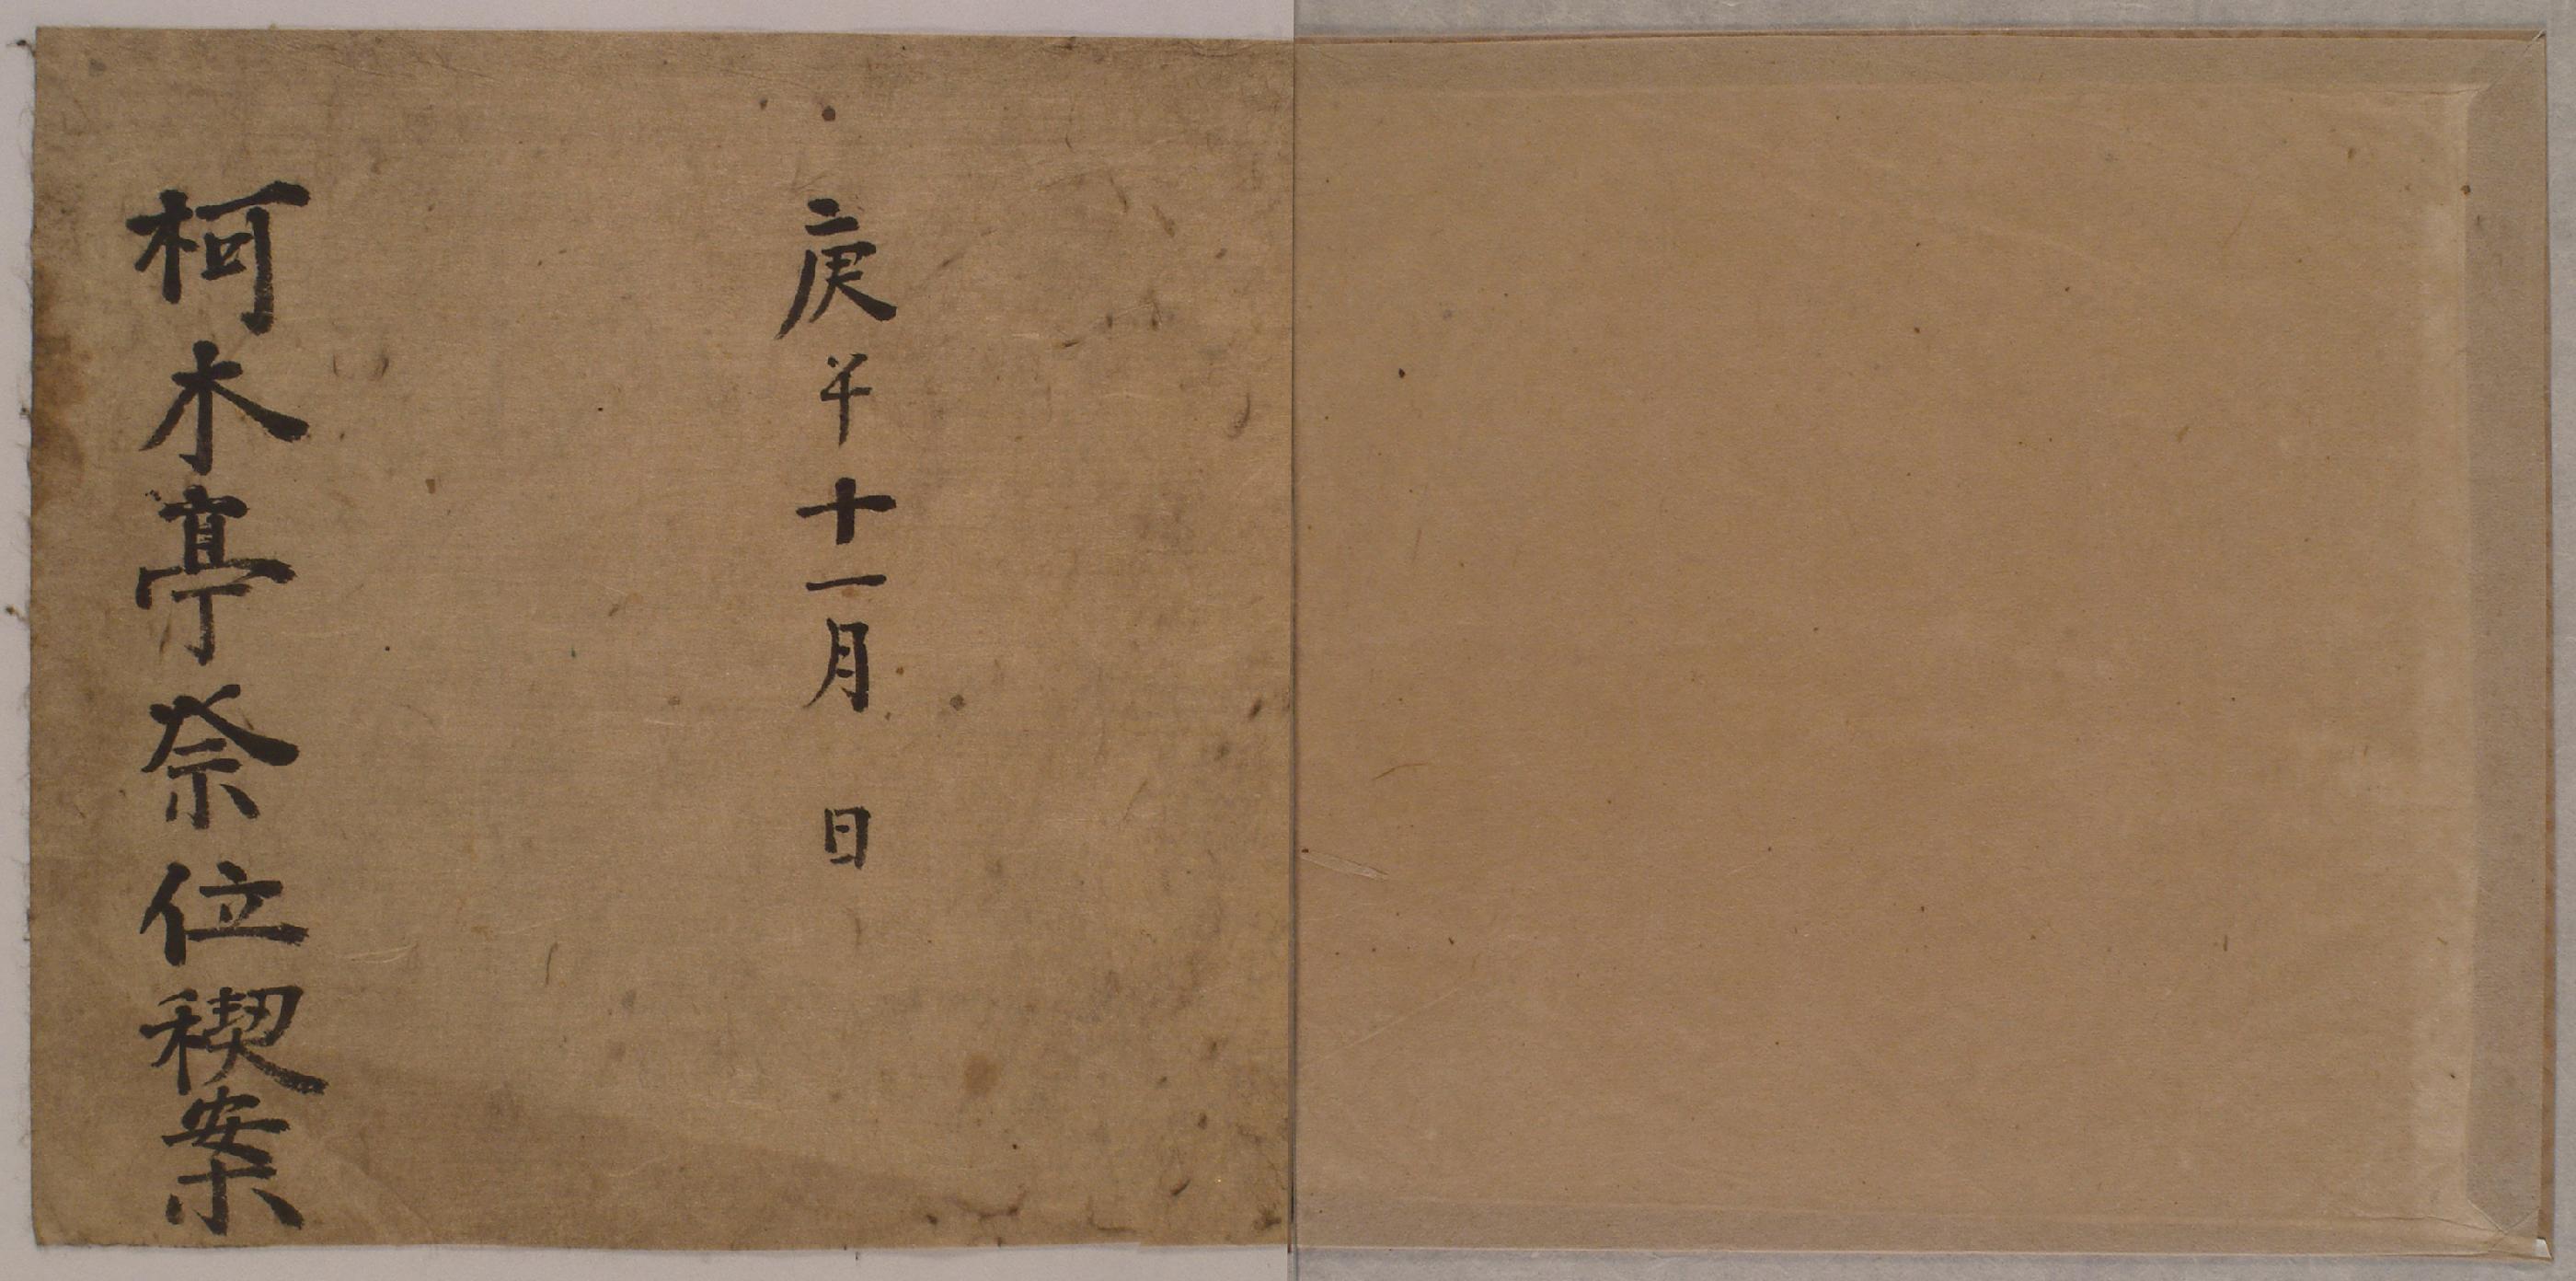 庚午十一月 日
柯木亭祭位稧案